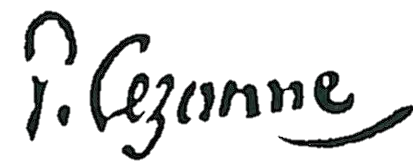 P. Cezanne